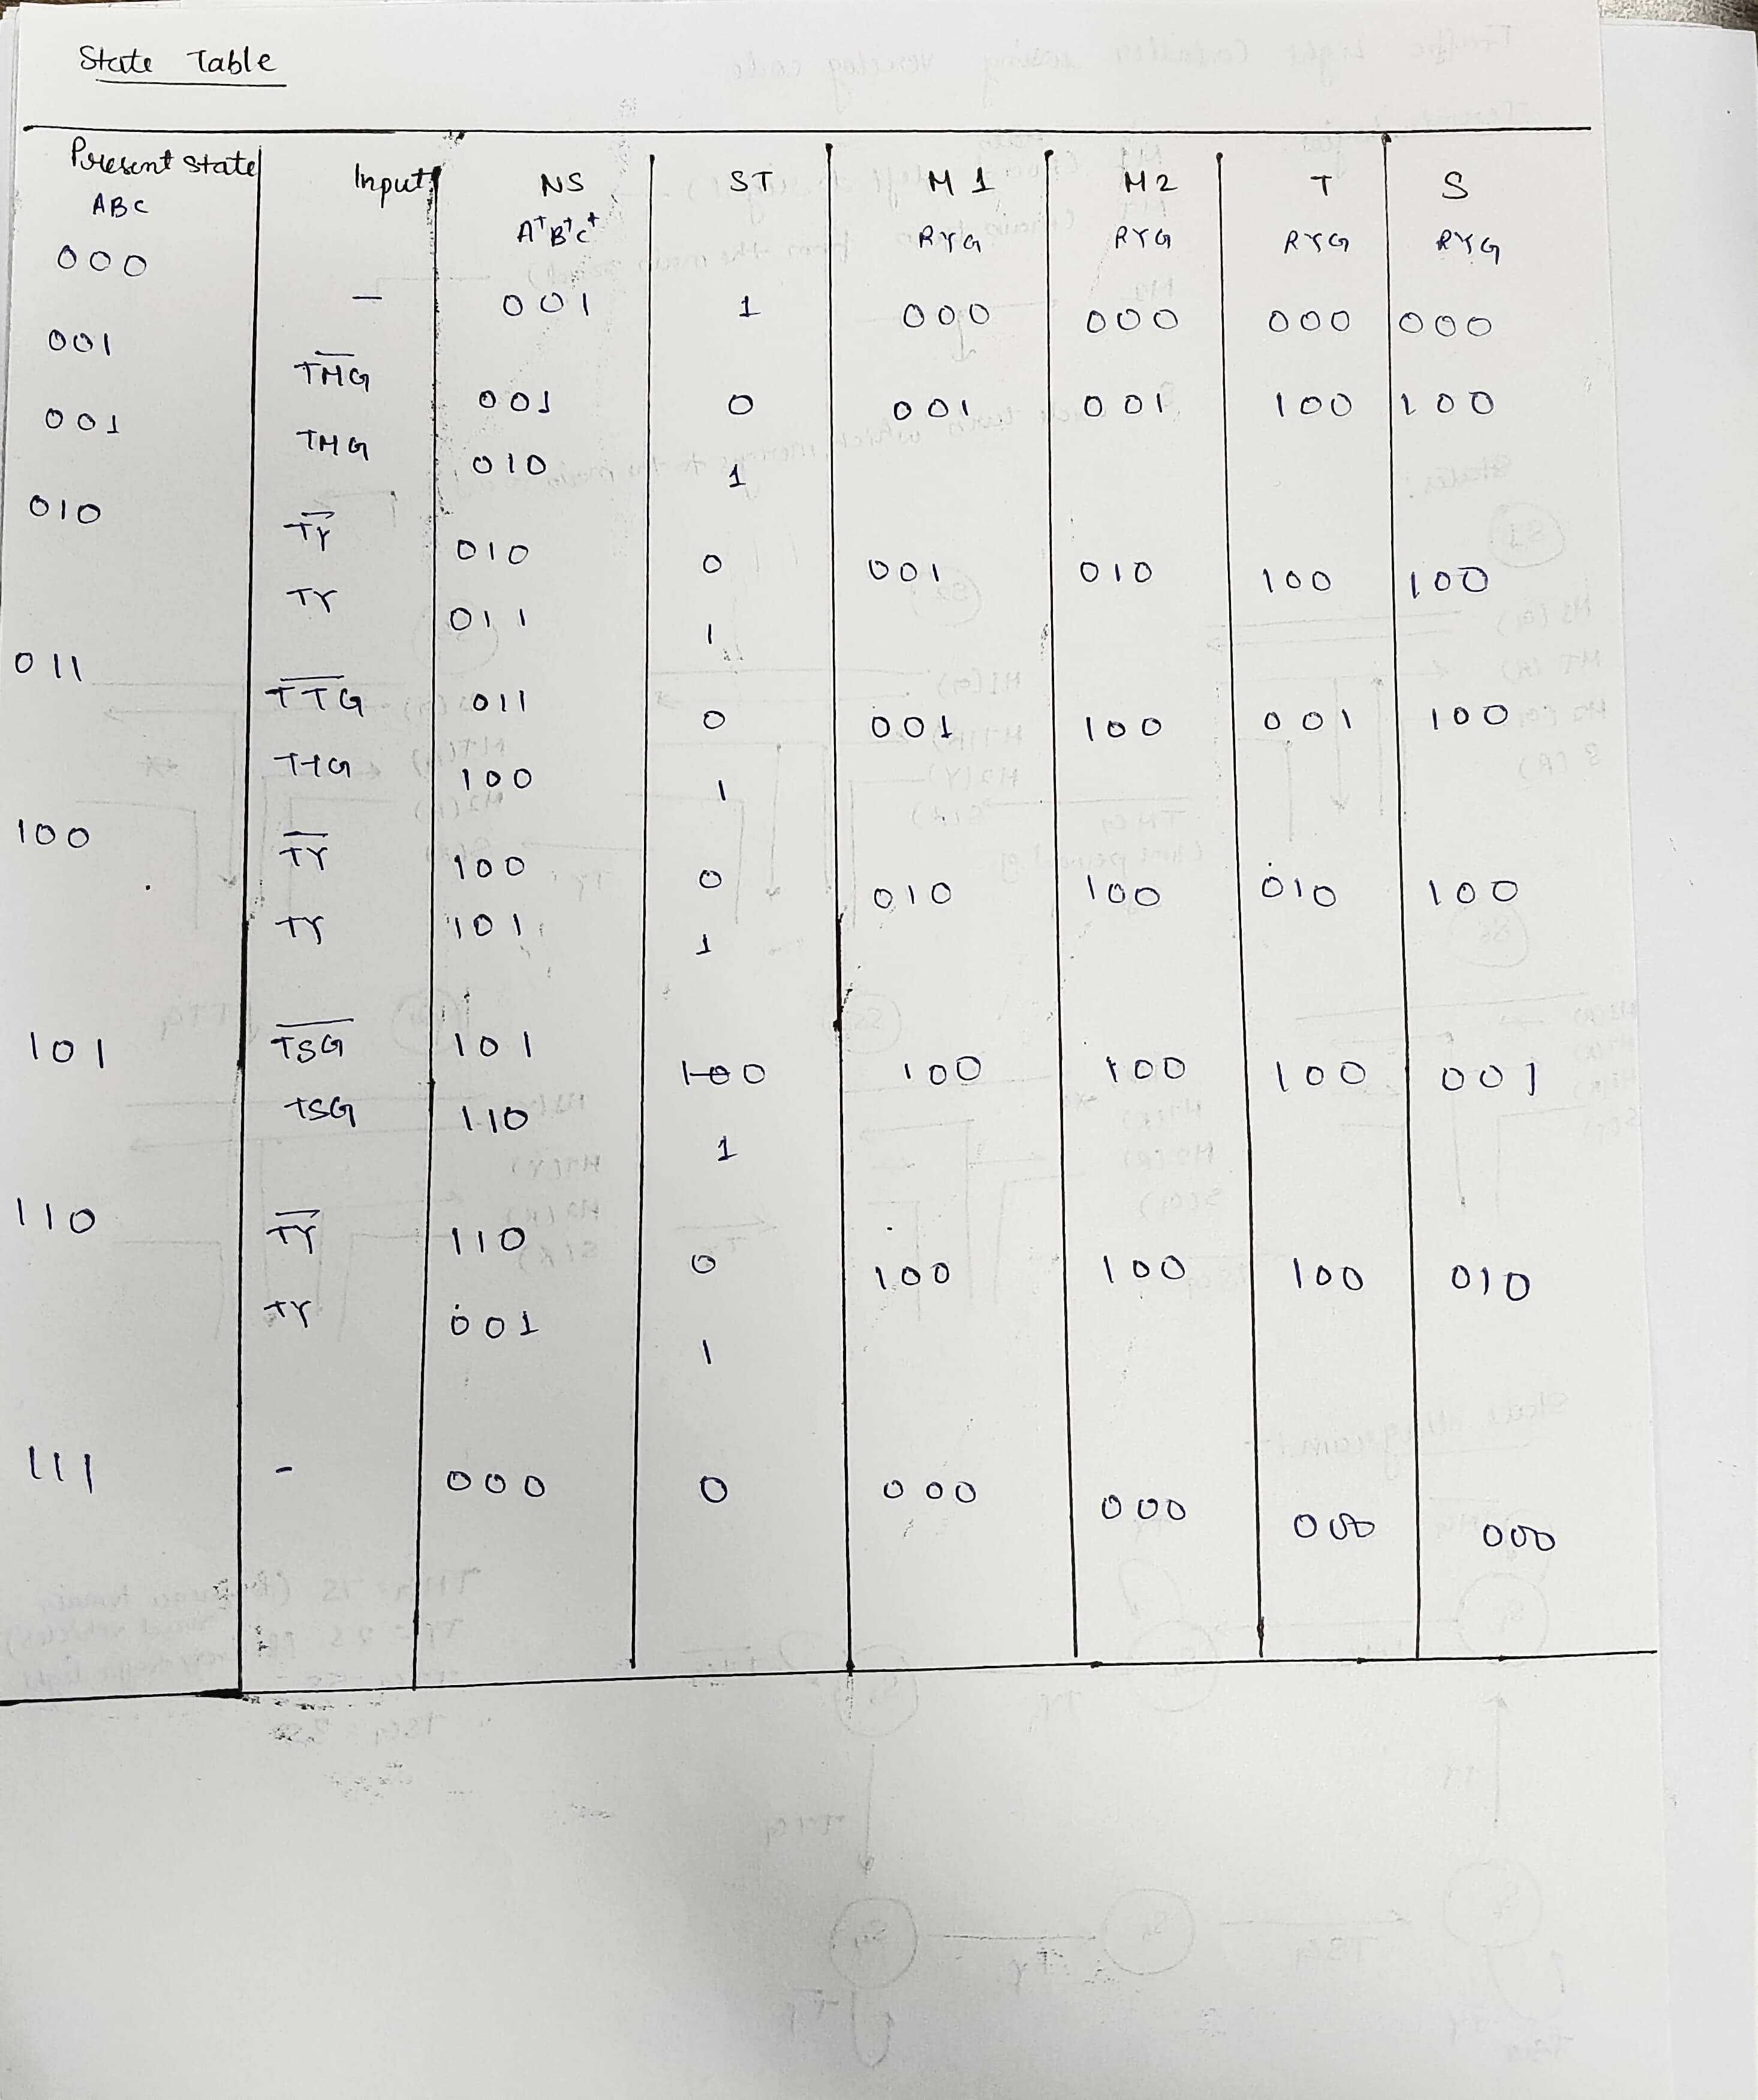 State Table
Present state Input NS ST M1 M2 T S
ABC A⁺B⁺C⁺ RYG RYG RYG RYG
000 - 001 1 000 000 000 000
001 T̅M̅G̅ 001 0 001 001 100 100
001 TMG 010 1
010 T̅Y̅ 010 0 001 010 100 100
TY 011 1
011 T̅T̅G̅ 011 0 001 100 001 100
TTG 100 1
100 T̅Y̅ 100 0 010 100 010 100
TY 101 1
101 T̅S̅G̅ 101 0 100 100 100 001
TSG 110 1
110 T̅Y̅ 110 0 100 100 100 010
TY 001 1
111 - 000 0 000 000 000 000